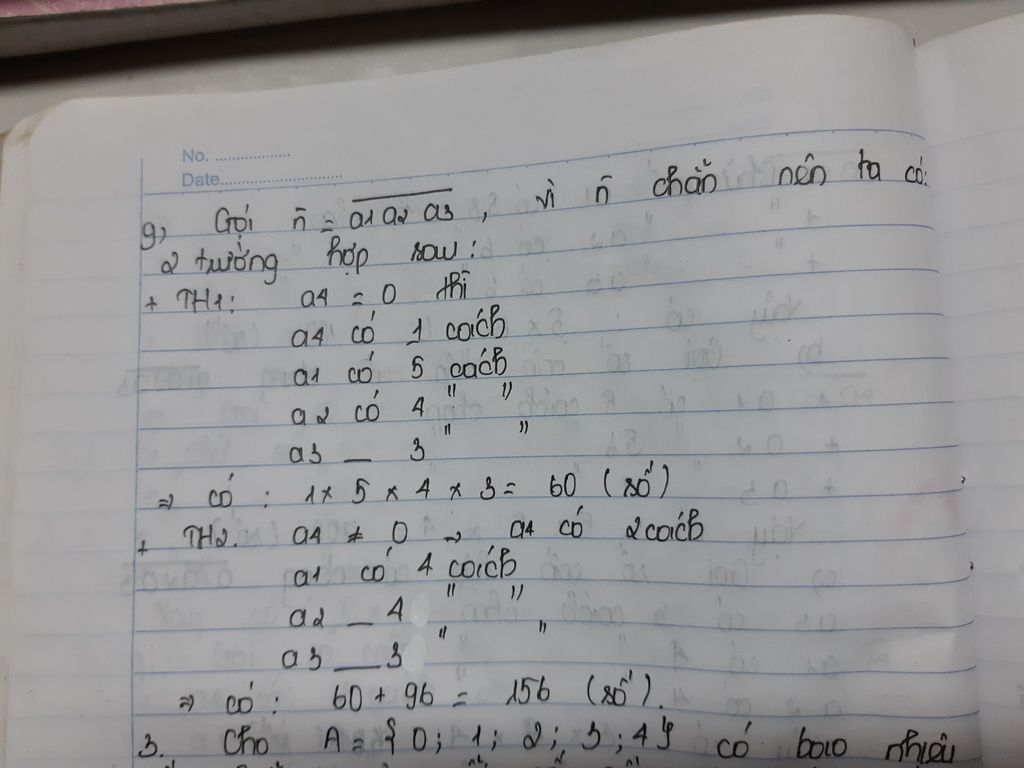 No. ..................
Date..............................
g, Gọi n̄ = a1 a2 a3, vì n̄ chẵn nên ta có:
2 trường hợp sau:
+ TH1: a4 = 0 thì
a4 có 1 cách
a1 có 5 cách
a2 có 4 " "
a3 _ 3 " "
⇒ có: 1 x 5 x 4 x 3 = 60 (số)
+ TH2. a4 ≠ 0 → a4 có 2 cách
a1 có 4 cách
a2 _ 4 " "
a3 _ 3 " "
⇒ có: 60 + 96 = 156 (số).
3. Cho A = { 0; 1; 2; 3; 4} có bao nhiêu